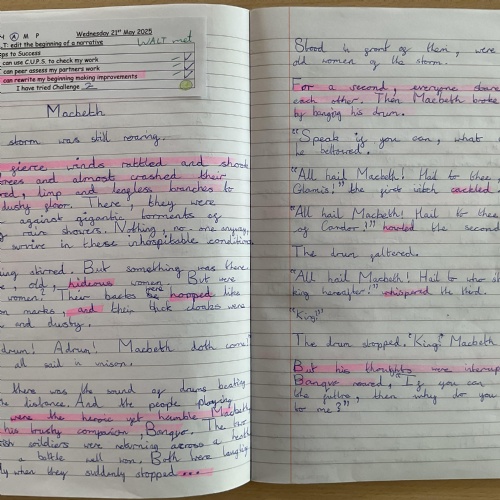 Y A M P Wednesday 21st May 2025
L.T: edit the beginning of a narrative WALT met
Steps to Success
can use C.U.P.S. to check my work
can peer assess my partners work
can rewrite my beginning making improvements
I have tried Challenge 2
Macbeth
storm was still roaring.
gierce winds rattled and shook
trees and almost crashed their
limp and leafless branches to
dusty floor. There, they were
against gigantic torments of
rain showers. Nothing, no-one anyway,
survive in these inhospitable condition
stirred. But something was there.
, old, hideous women. But were
women? Their backs were hooped like
marks, and their thick cloaks were
and dusty.
drum! A drum! Macbeth doth come!"
all said in unison.
there was the sound of drums beating
the distance. And the people playing
were the heroic yet humble Macbeth
his trusty companion, Banquo. The two
soldiers were returning across a heath
a battle well won. Both were laughing
when they suddenly stopped....
Stood in front of them, were
old women of the storm.
For a second, everyone stare
each other. Then Macbeth broke
by banging his drum.
"Speak if you can, what
he bellowed.
"All hail Macbeth! Hail to thee,
Glamis!" the first witch cackled.
"All hail Macbeth! Hail to thee
of Cawdor!" howled the second
The drum faltered.
"All hail Macbeth! Hail to
king hereafter!" whispered the third.
"King?"
The drum stopped. "King?" Macbeth
But his thoughts were interrup
Banquo roared, "If you can
the future, then why do you
to me?"